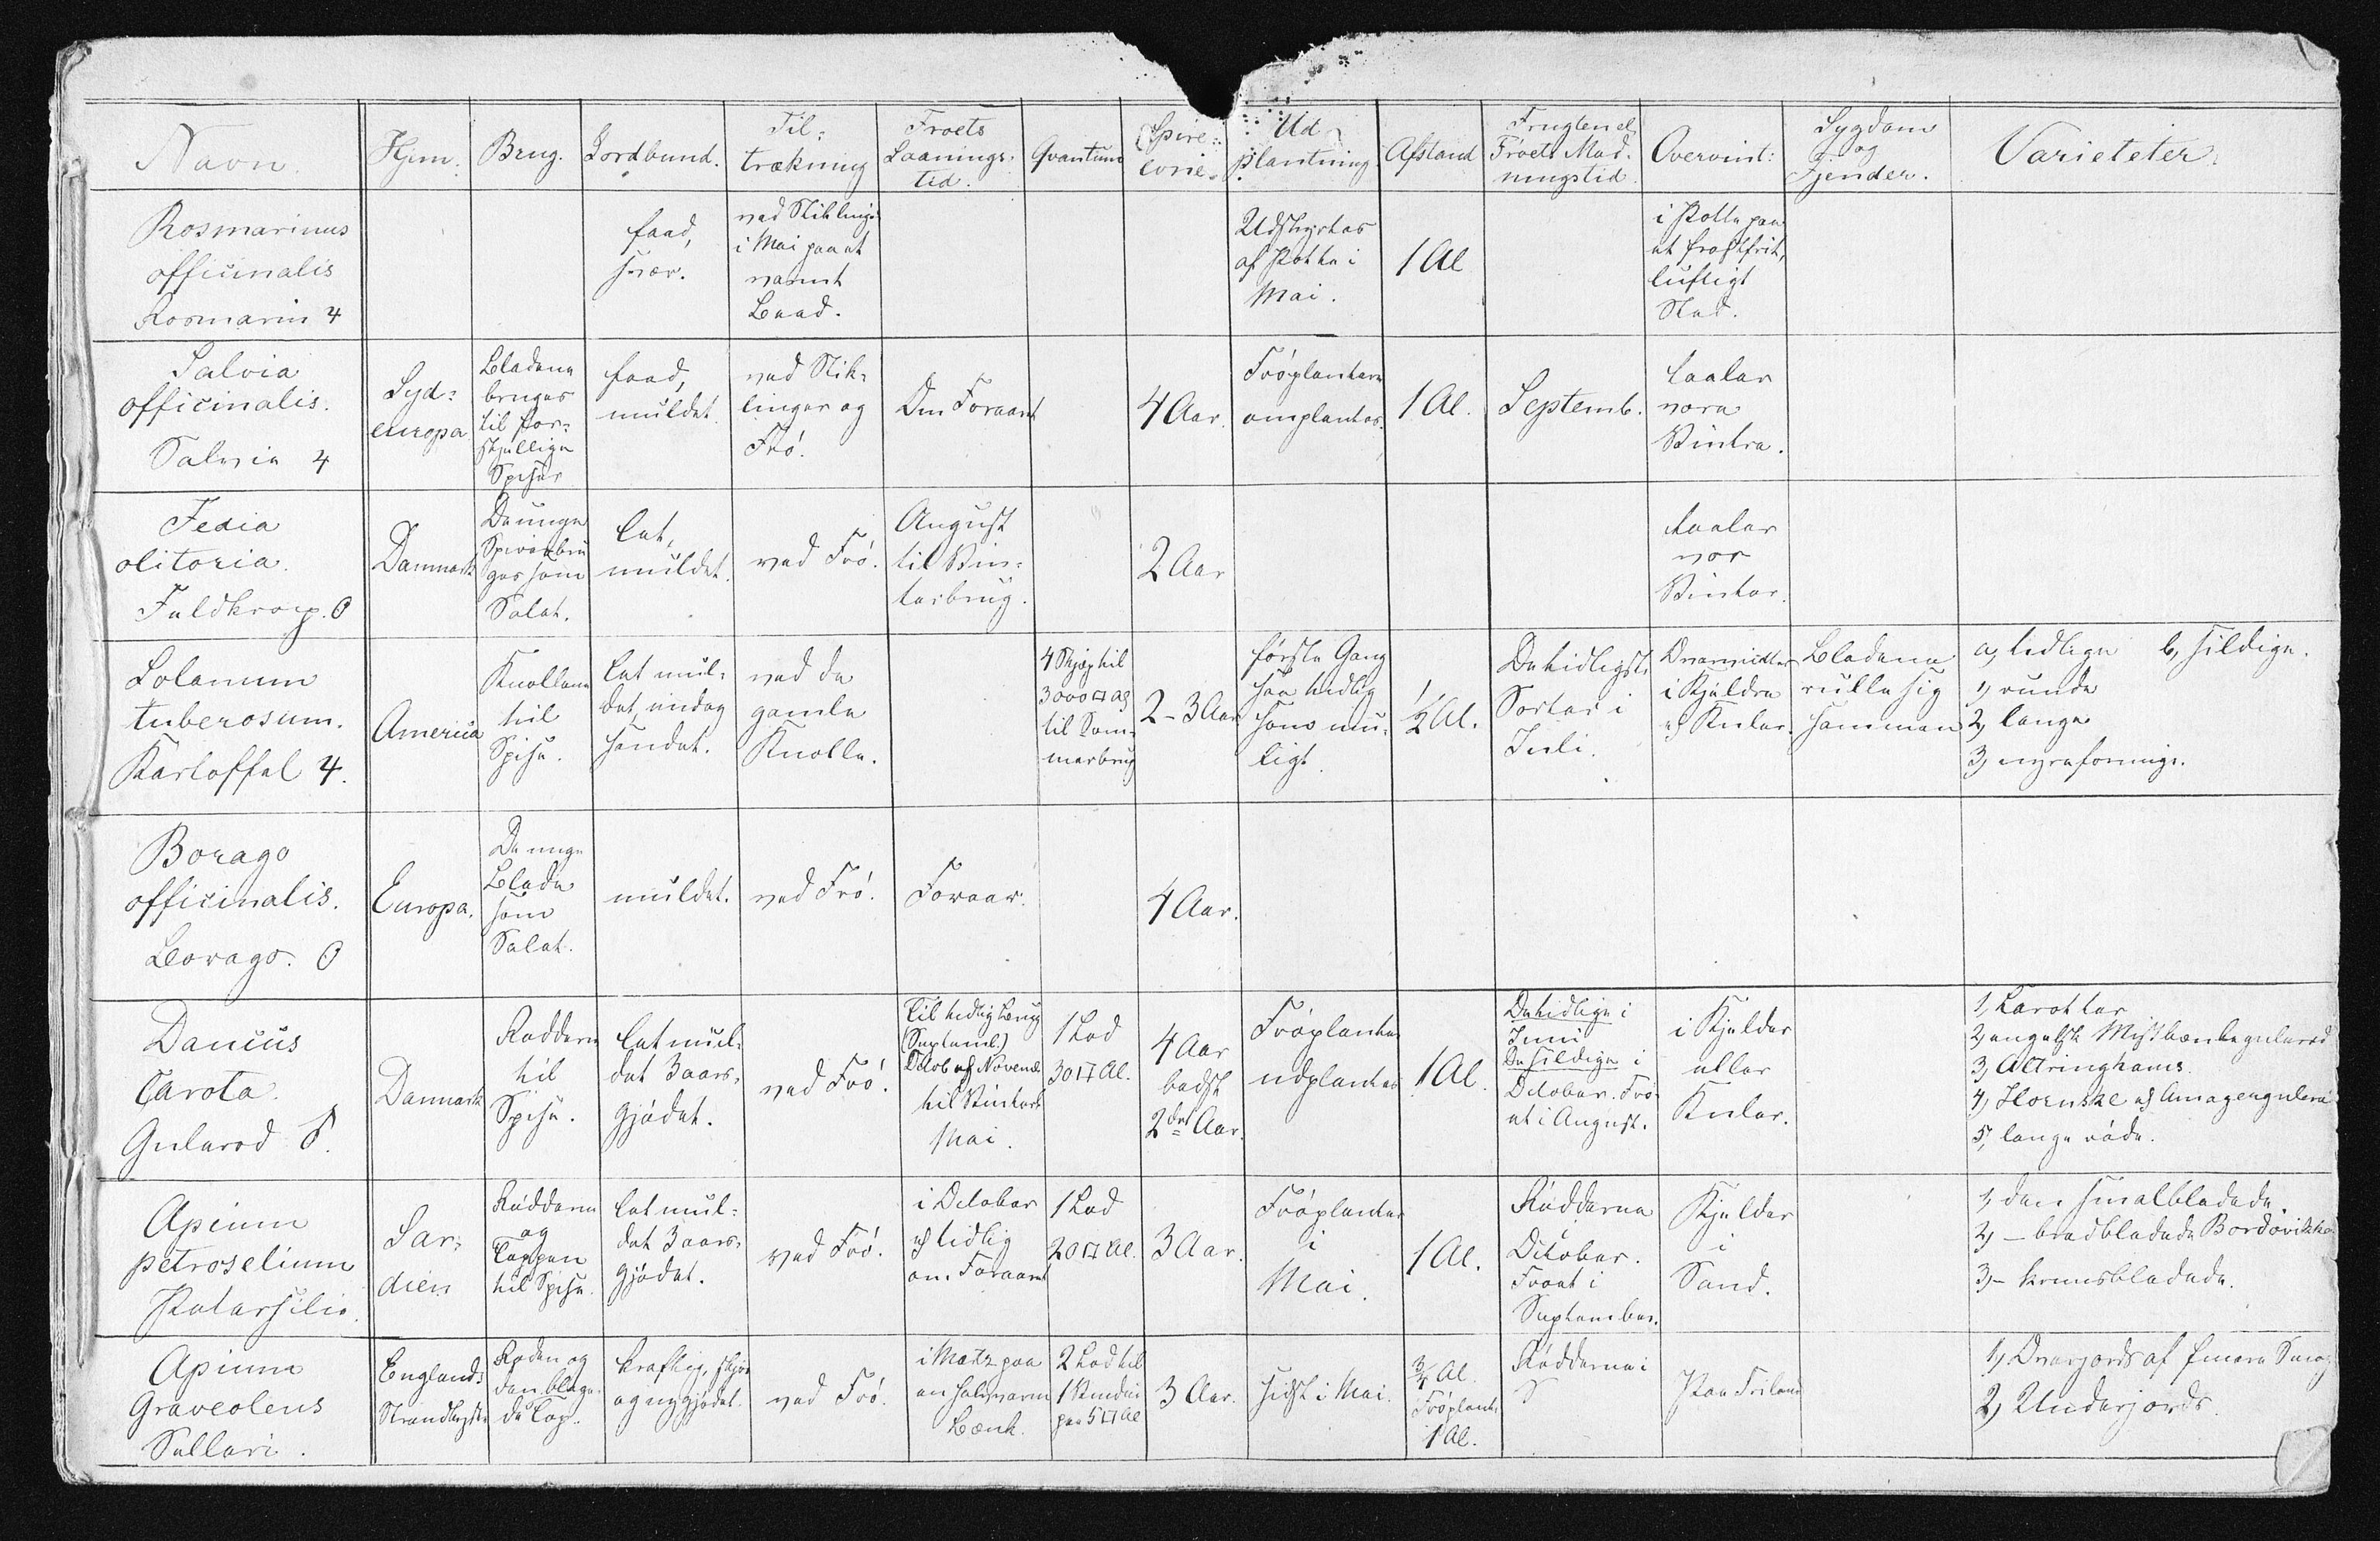 Navn
Hjem.
Brug.
Jordbund.
Til-
trækning
Froets
Laanings-
tid.
Qvantum
Spire-
evne
Ud
plantning
Afstand
Frugten el
Froets Mod-
ningstid
Overvint:
Sygdom
og
Fjender.
Varieteter
Rosmarinus
officinalis
Rosmarin 4
feed,
svær.
ved Stikling
i Mai paa et
varmt
Beed.
Udskyttes
af Potte i
Mai.
1 Al
i Potte paa
et frostfrit,
luftigt
Sted.
Salvia
officinalis.
Salvia 4
Syd-
europa
Bladene
bruges
til for-
skjellige
Spiser
feed,
muldet
ved Stik-
linger og
Frö.
Om Foraaret
4 Aar.
Fröplanterne
omplantes.
1 Al.
Septemb.
taaler
vore
Vintre.
Fedia
olitoria.
Danmark
De unge
Spirer bru
ges som
Salat.
let,
muldet.
ved Frö.
August
til Vin-
terbrug.
2 Aar
taaler
vor
Vinter.
Solanum
tuberosum.
Kartoffel 4.
America
Knollene
til
Spise.
let mul-
det, endog
sandet.
ved de
gamle
Knolle.
4 Skjep til
3000 □ Al
til Som-
merbrug
2-3 Aar
förste Gang
saa tidlig
som mu-
ligt.
1/2 Al.
De tidligste
Sorter i
Juli.
Overvintres
i Kjeldre
el Kuler.
Bladene
rulle sig
sammen
a, tidlige b, sildige.
1, runde
2, lange
3, nyreformige.
Borago
officinalis.
Borago. O
Europa.
De unge
Blade
som
Salat.
muldet.
ved Frö.
Foraar.
4 Aar.
Daucus
Carota.
Gulerod ♂.
Danmark
Rodderne
til
Spise.
let mul-
det 3 aars-
gjödet.
ved Frö.
Til tidlig Brug
(Septemb.)
Octob el Novemb.
til Vinterb
Mai.
1 Lod
30 □ Al.
4 Aar
bedst
2det Aar.
Fröplanter
udplantes
1 Al.
De tidlige i
Juni
De sildige i
October. Frö-
et i August.
i Kjelder
eller
Kuler.
1, Karotter
2, engelsk Mistbænkegulerod
3, Altringhams.
4, Hornske el Amagergulerod
5, lange röde.
Apium
petroselium
Petersilie.
Sar-
dien
Rödderne
og
Toppen
til Spise.
let mul-
det 3 aars-
gjödet.
ved Frö.
i October
el tidlig
om Foraaret
1 Lod
20 □ Al.
3 Aar.
Fröplanter
i
Mai.
1 Al.
Rödderne
i
October.
Froet i
September.
Kjelder
i
Sand.
1, den smalbladede
2, - bredbladede
3, - krusbladede.
Apium
Graveolens
Selleri.
Englands
Strandkyster
Roden og
den blege-
de Top.
kraftig, skjör
og nygjödet.
ved Frö.
i Marts paa
en halvvarm
Bænk.
2 Lod til
1 Vindue
paa 5 □ Al
3 Aar.
sidst i Mai.
3/4 Al.
Fröplante
1 Al.
Rödderne i
S
Paa Friland
1, Overjords af finere Smag
2, Underjords.